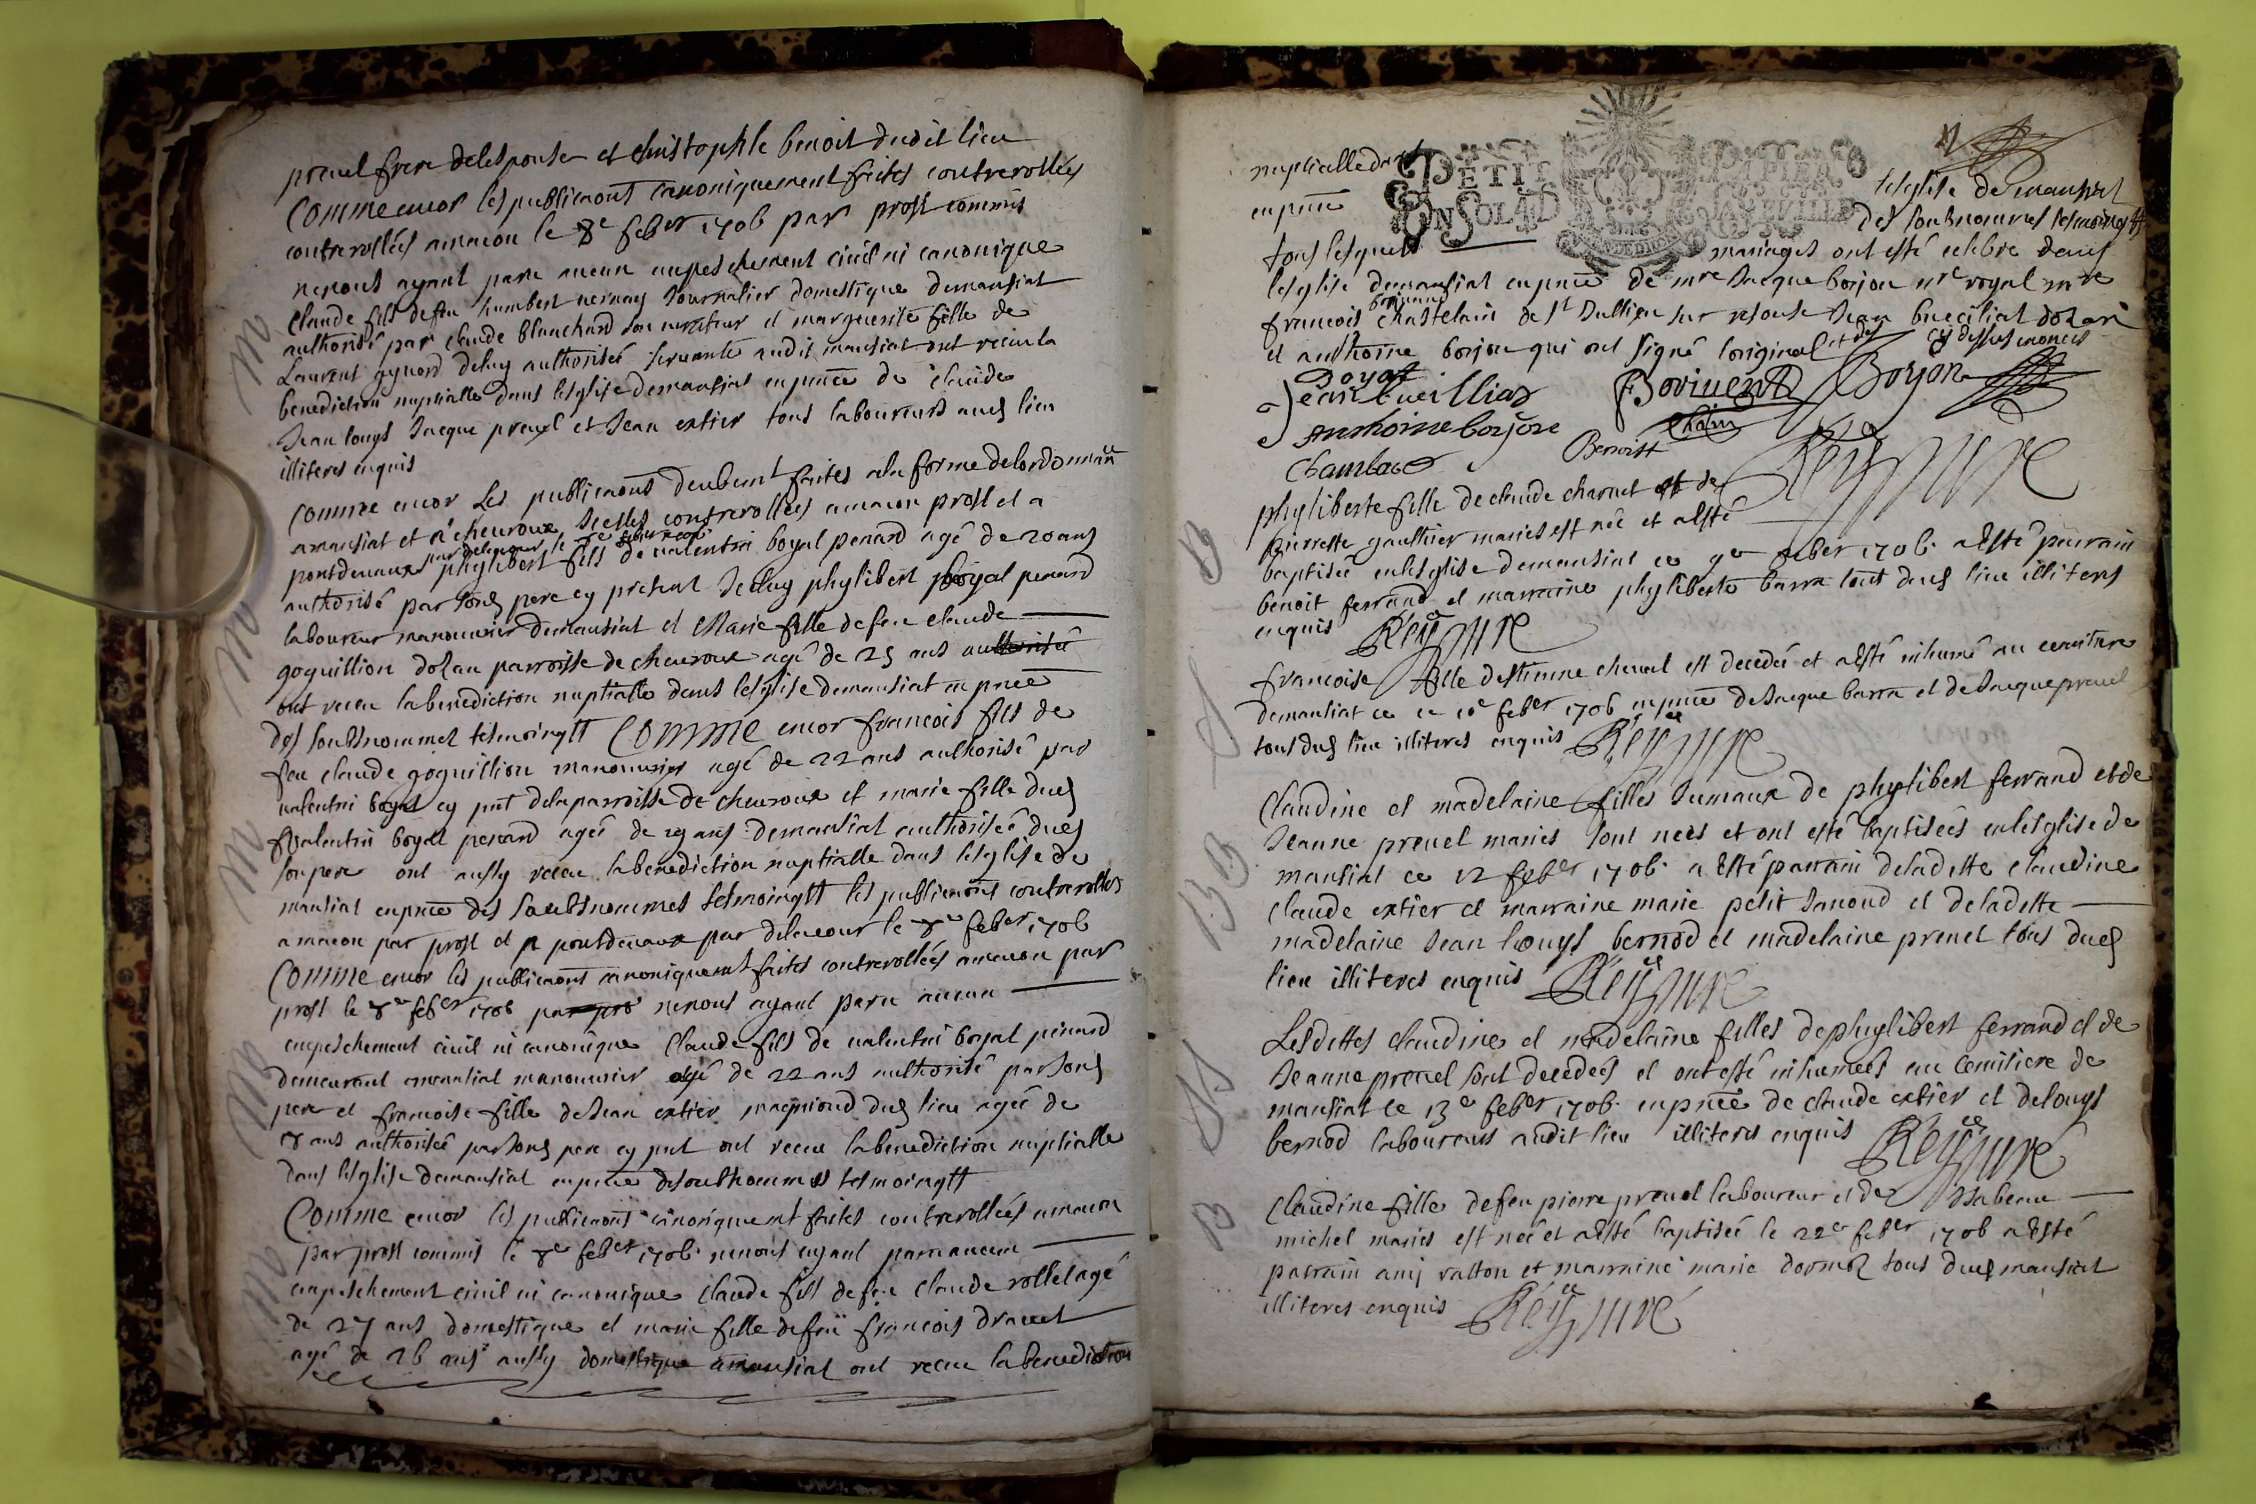 preuel frere delespouse et christophle benoit dudit lieu
Comme encor les publicaons canoniquement faites controrollées
controrollées amacon le 8e feber 1706 par prost commis
nenous ayant paru aucun empeschement ciuil ni canonique
Claude fils defeu humbert uernay Journalier domestique demansiat
authorisé par claude blanchard son curateur et marguerite fille de
Laurent gynod deluy authorisée seruante audit mansiat ont receu la
benediction nuptialle dans leglise demansiat enpnce de claude
Jean louys Jacque preuel et Jean extier tous laboureurs aud lieu
illiteres enquis
comme encor Les publicaons deubemt faites ala forme delordonnance
amansiat et a cheuroux Icelles controrollées amacon prost et a
pontdeuaux par delacour le phylibert fils de ualentin boyal penard agé de 20 ans
authorisé par sond pere cy present deluy phylibert boyal penard
laboureur manouurier demansiat et Marie fille defeu claude
goquillion dozan parroisse de cheuroux agé de 25 ans
ont receu la benediction nuptialle dans leglise demansiat enpnce
des soubsnommez tesmoingtt Comme encor francois fils de
feu claude goquillion manouurier agé de 22 ans authorisé par
ualentin boyal cy pnt delaparroisse de cheuroux et marie fille dud
ualentin boyal penard agée de 19 ans demansiat authorisée dud
son pere ont aussy receu la benediction nuptialle dans leglise de
mansiat enpnce des soubsnommes tesmoingtt les publicaons controrollées
amacon par prost et a pontdeuaux par delacour le 8e feber 1706
Comme encor les publicaons canoniquemt faites controrollées amacon par
prost le 8e feber 1706 nenous ayant paru aucun
empeschement ciuil ni canonique Claude fils de ualentin boyal penard
demeurant amansiat manouurier agé de 22 ans authorisé par sond
pere et francoise fille deJean extier dud lieu agée de
ans authorisée par sond pere cy pnt ont receu labenediction nuptialle
dans leglise demansiat enpnce desoubsnommes tesmoingtt
Comme encor les publicaons canoniquemt faites controrollées amacon
par prost commis le 8e feber 1706 nenous ayant paru aucun
empeschement ciuil ni canonique claude fils defeu Claude rollet agé
de 27 ans domestique et marie fille defeu francois drauet
agé de 26 ans aussy domestique amansiat ont receu la benediction
nuptialle dans leglise demansiat
PETIT PAPIER
enpnce des soubsnommes tesmoingtt
tous lesquels mariages ont esté celebre dans
leglise demansiat enpnce de mre Jacque borjon nre royal mre
francois chastelain de st Jullien sur resouse Jean bueilliat dozan
et anthoine borjon qui ont signé loriginal cy dessus enoncés
Jean bueilliat
Borjon
anthoine borjon
Benoist
chambard
Reÿ curé
phyliberte fille de claude charnet et de
pierrette gaulthier mariés est née et aesté
baptisée enleglise demansiat ce 9e feber 1706 aesté parrain
benoit ferrand et marraine phyliberte barra tout dud lieu illiteres
enquis Reÿ curé
francoise fille destienne cheual est decedée et aesté inhumé au cemitiere
demansiat ce 10e feber 1706 enpnce deJacque barra et deJacque preuel
tous dud lieu illiteres enquis Reÿ curé
Claudine et madelaine filles Jumaux de phylibert ferrand et de
Jeanne preuel mariés sont neés et ont esté baptiseés enleglise de
mansiat ce 12 feber 1706 a esté parrain deladitte claudine
claude extier et marraine marie petit Janoud et deladitte
madelaine Jean louys bernod et madelaine preuel tous dud
lieu illiteres enquis Reÿ curé
Lesdittes claudine et madelaine filles dephylibert ferrand et de
Jeanne preuel sont decedeés et ont esté inhumeés au cemitiere de
mansiat le 13e feber 1706 enpnce de claude extier et delouys
bernod laboureurs audit lieu illiteres enquis Reÿ curé
Claudine fille defeu pierre preuel laboureur et de Isabeau
michel mariés est neé et aesté baptiseé le 22e feber 1706 aesté
parrain amy ratton et marraine marie dud mansiat
illiteres enquis Reÿ curé